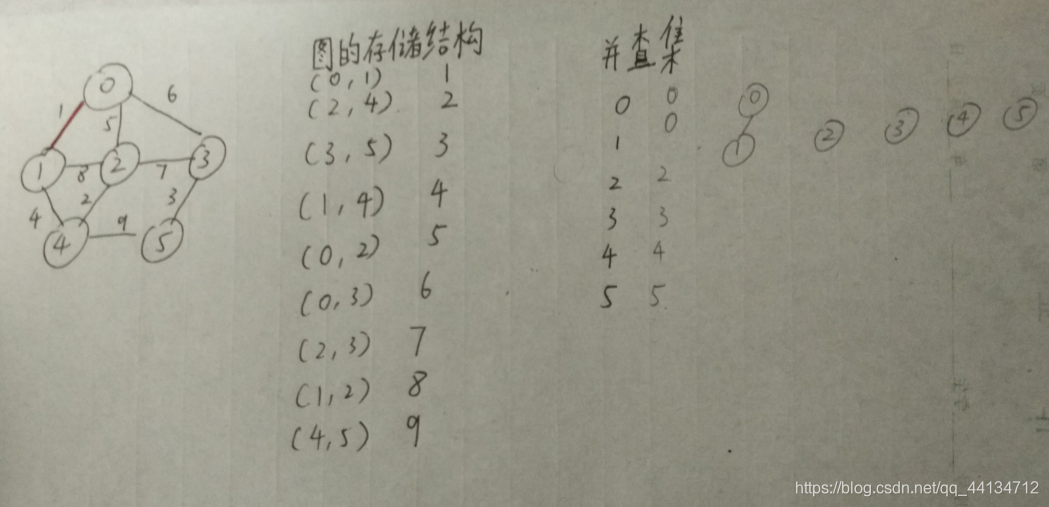 图的存储结构
(0,1) 1
(2,4) 2
(3,5) 3
(1,4) 4
(0,2) 5
(0,3) 6
(2,3) 7
(1,2) 8
(4,5) 9
并查集
0 0
1 0
2 2
3 3
4 4
5 5
0
1 2 3 4 5
0
1 6
5
1 8 2 7 3
4 2 3
4 9 5
https://blog.csdn.net/qq_44134712